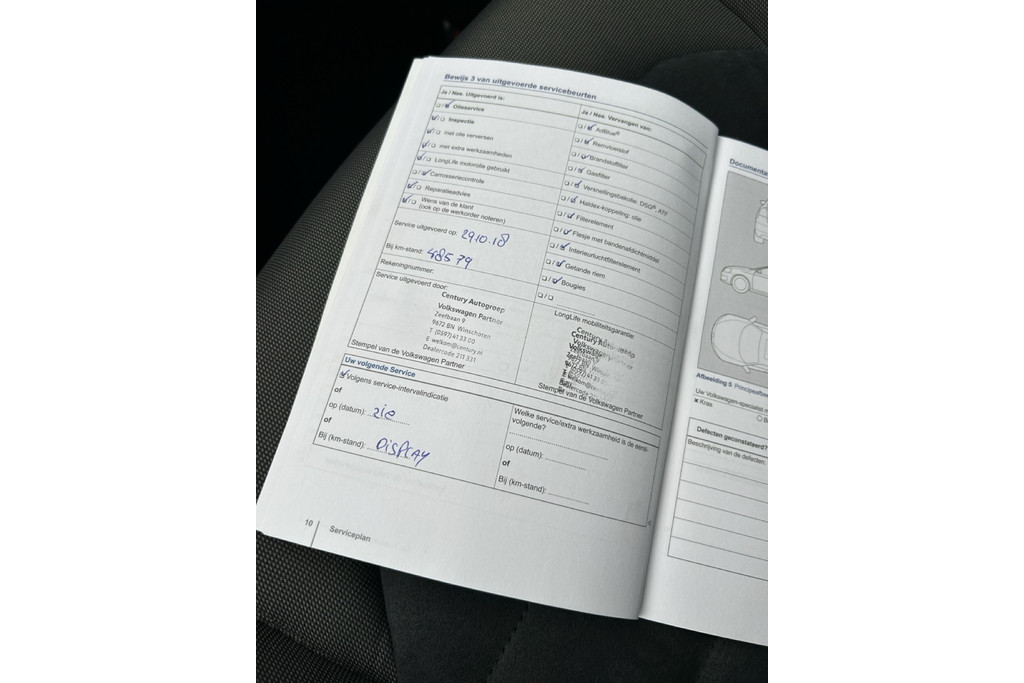 Bewijs 3 van uitgevoerde servicebeurten
Ja / Nee. Uitgevoerd is:
Olieservice
Inspectie
met olie verversen
met extra werkzaamheden
LongLife motorolie gebruikt
Carrosseriecontrole
Reparatieadvies
Wens van de klant
(ook op de werkorder noteren)
Service uitgevoerd op: 29.10.18
Bij km-stand: 48579
Rekeningnummer:
Service uitgevoerd door:
Century Autogroep
Volkswagen Partner
Zeefbaan 9
9672 BN Winschoten
T (0597) 41 33 00
E welkom@century.nl
Dealercode 211 331
Stempel van de Volkswagen Partner
Ja / Nee. Vervangen van:
AdBlue®
Remvloeistof
Brandstoffilter
Gasfilter
Versnellingsbakolie: DSG®, ATF
Haldex-koppeling: olie
Filterelement
Flesje met bandenafdichtmiddel
Interieurluchtfilterelement
Getande riem
Bougies
LongLife mobiliteitsgarantie
Century Autogroep
Stempel van de Volkswagen Partner
Uw volgende Service
Volgens service-intervalindicatie
of
op (datum): zie
of
Bij (km-stand): DISPLAY
Welke service/extra werkzaamheid is de eerst-
volgende?
op (datum):
of
Bij (km-stand):
10
Serviceplan
Documenta
Afbeelding 5 Principeafbee
Uw Volkswagen-specialist m
× Kras
Defecten geconstateerd?
Beschrijving van de defecten: